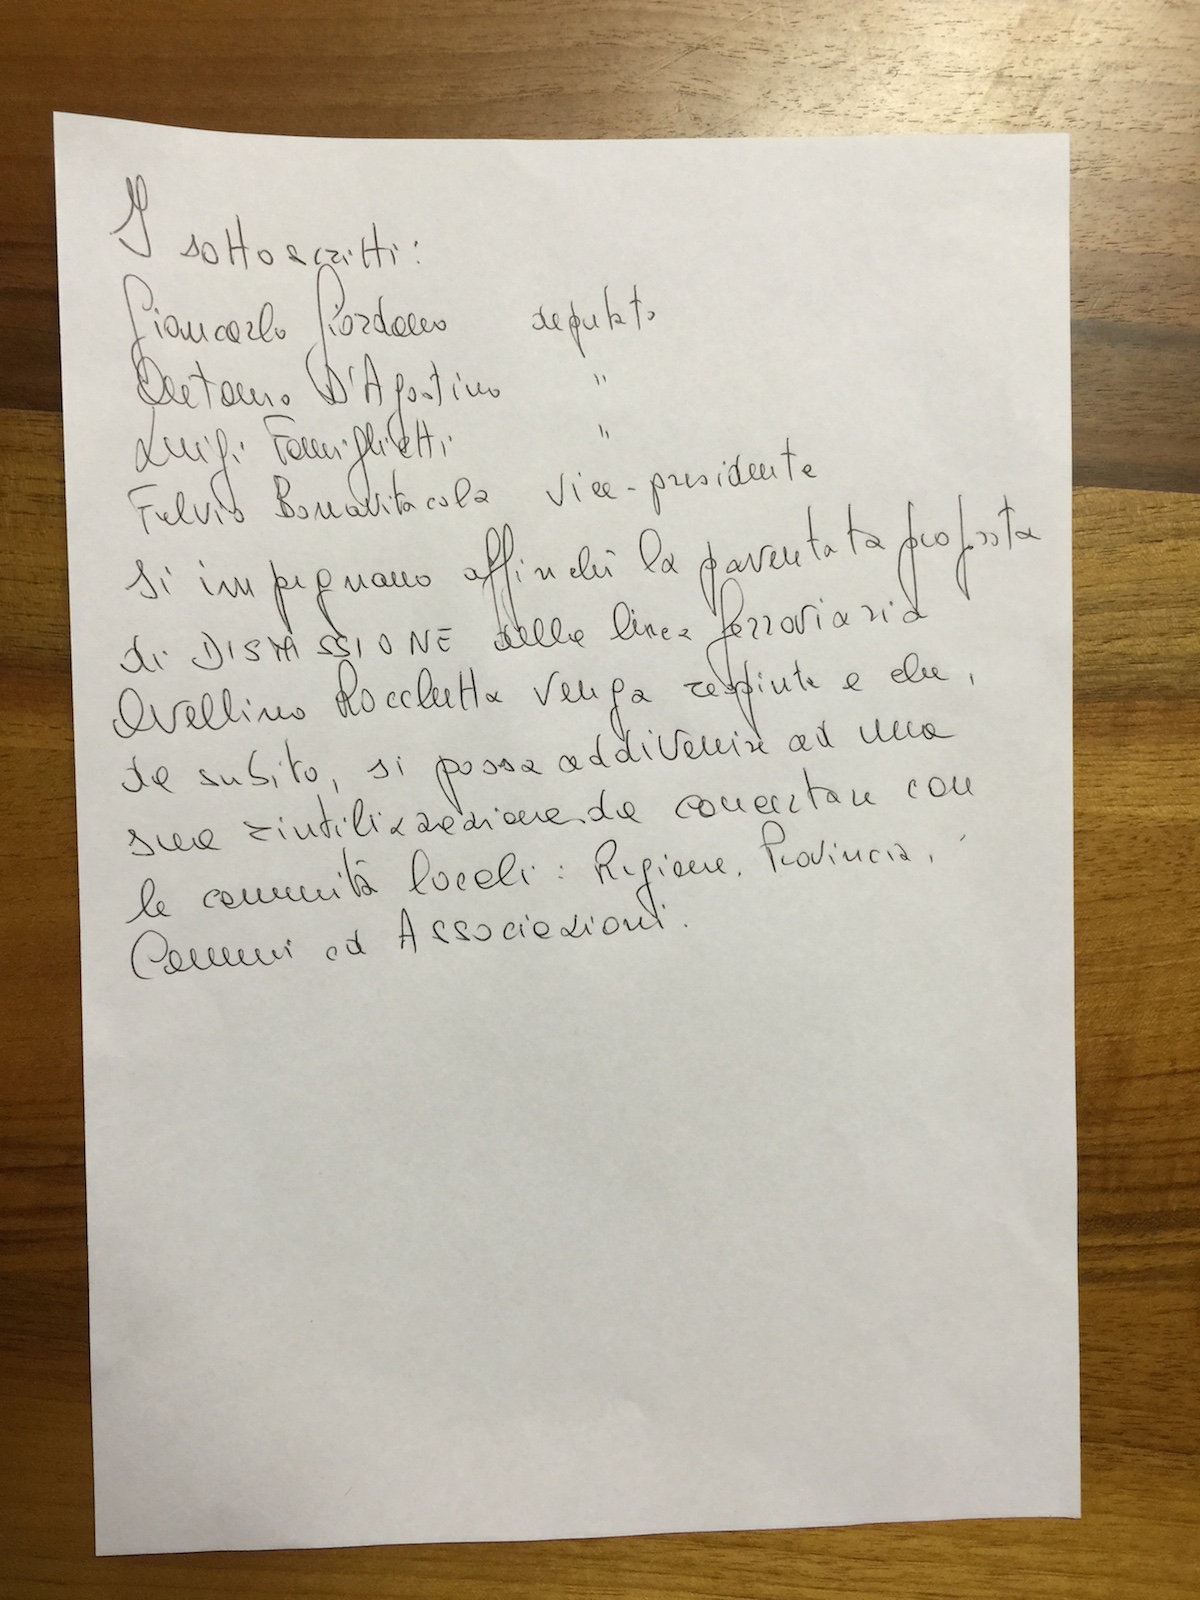 I sottoscritti:
Giancarlo Giordano deputato
Angelo D'Agostino "
Luigi Famiglietti "
Fulvio Bonavitacola vice-presidente
si impegnano affinché la paventata proposta
di DISMISSIONE della linea ferroviaria
Avellino Rocchetta venga respinta e che,
da subito, si possa addivenire ad una
sua riutilizzazione da concertare con
le comunità locali: Regione, Provincia,
Comuni ed Associazioni.